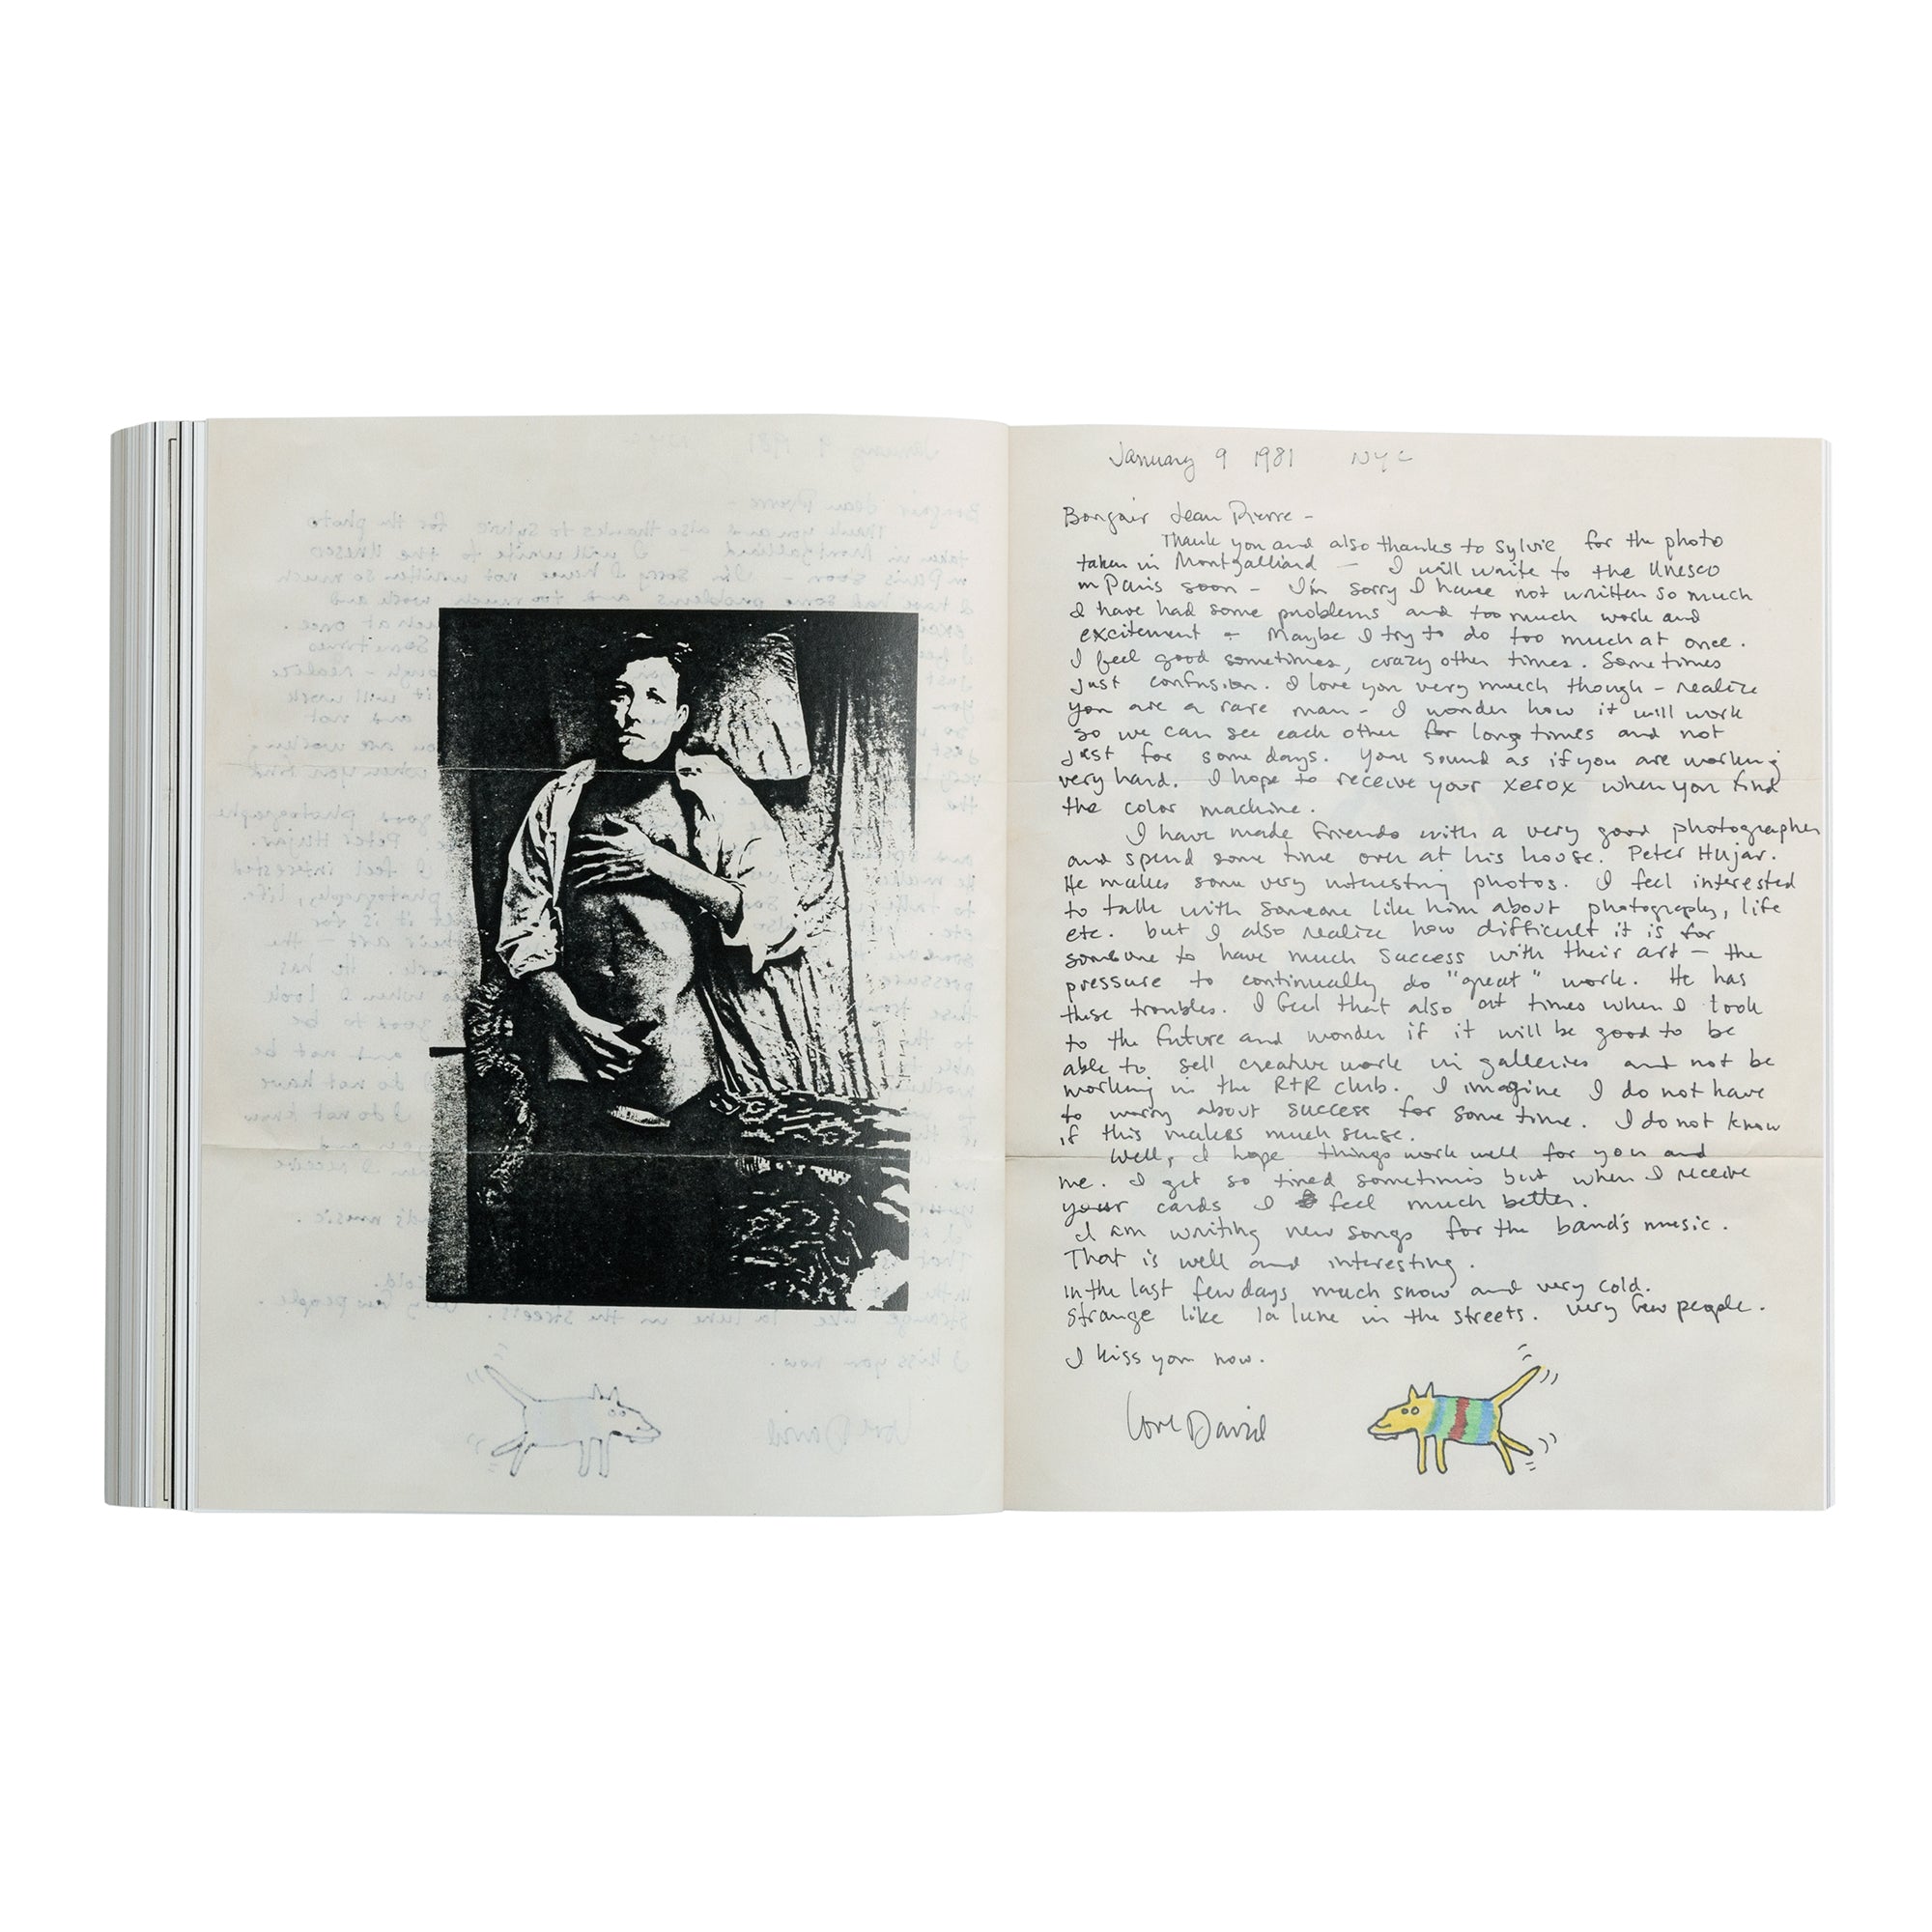 January 9 1981 NYC
Bonjair Jean Pierre -
Thank you and also thanks to Sylvie for the photo
taken in Montgalliard - I will write to the Unesco
in Paris soon - I'm sorry I have not written so much
I have had some problems and too much work and
excitement - Maybe I try to do too much at once.
I feel good sometimes, crazy other times. Sometimes
just confusion. I love you very much though - realize
you are a rare man - I wonder how it will work
so we can see each other for long times and not
just for some days. You sound as if you are working
very hard. I hope to receive your xerox when you find
the color machine.
I have made friends with a very good photographer
and spend some time over at his house. Peter Hujar.
He makes some very interesting photos. I feel interested
to talk with someone like him about photography, life
etc. but I also realize how difficult it is for
someone to have much success with their art - the
pressure to continually do "great" work. He has
these troubles. I feel that also at times when I look
to the future and wonder if it will be good to be
able to sell creative work in galleries and not be
working in the R+R club. I imagine I do not have
to worry about success for some time. I do not know
if this makes much sense.
Well, I hope things work well for you and
me. I get so tired sometimes but when I receive
your cards I feel much better.
I am writing new songs for the band's music.
That is well and interesting.
In the last few days much snow and very cold.
Strange like la lune in the streets. very few people.
I kiss you now.
Love David